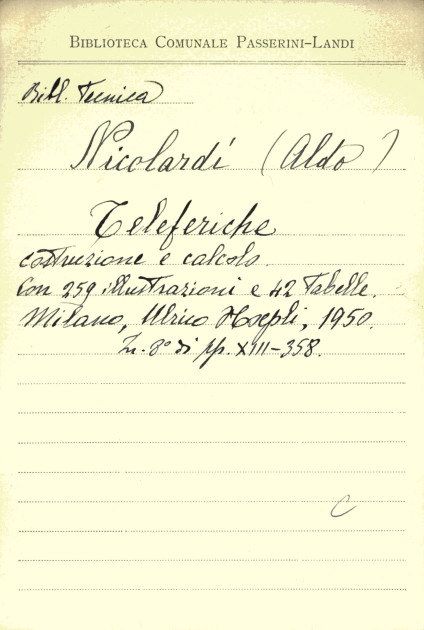 BIBLIOTECA COMUNALE PASSERINI-LANDI
Bibl. Tecnica
Nicolardi (Aldo)
Teleferiche
costruzione e calcolo.
Con 259 illustrazioni e 42 Tabelle.
Milano, Ulrico Hoepli, 1950.
In-8° di pp. XIII-358.
C